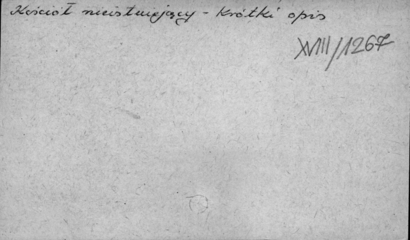 Kościół nieistniejący - krótki opis
XVIII/1267